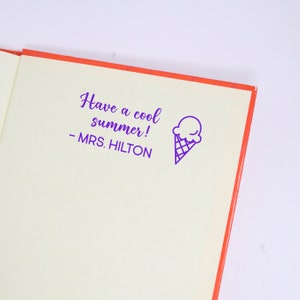 Have a cool
summer!
- MRS. HILTON